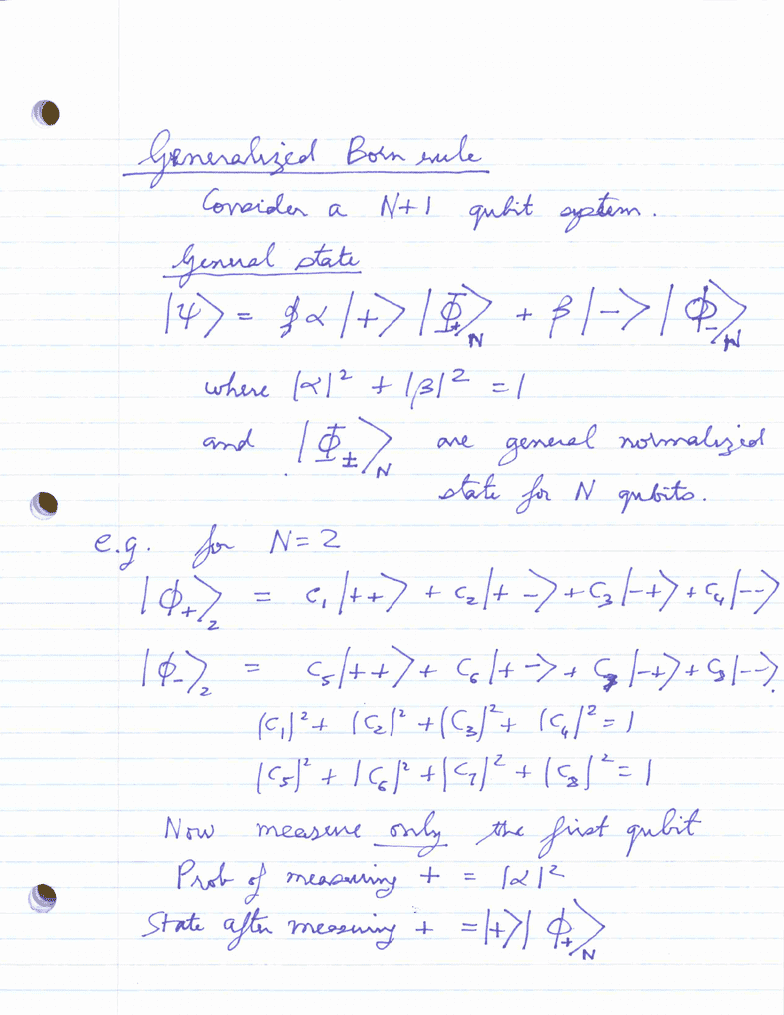 Generalized Born rule
Consider a N+1 qubit system.
General state
|ψ> = α |+> |Φ+>N + β |-> |Φ->N
where |α|² + |β|² = 1
and |Φ±>N are general normalized
state for N qubits.
e.g. for N=2
|Φ+>2 = C1 |++> + C2 |+-> + C3 |-+> + C4 |-->
|Φ->2 = C5 |++> + C6 |+-> + C7 |-+> + C8 |-->.
|C1|² + |C2|² + |C3|² + |C4|² = 1
|C5|² + |C6|² + |C7|² + |C8|² = 1
Now measure only the first qubit
Prob of measuring + = |α|²
State after measuring + = |+>| Φ+>N